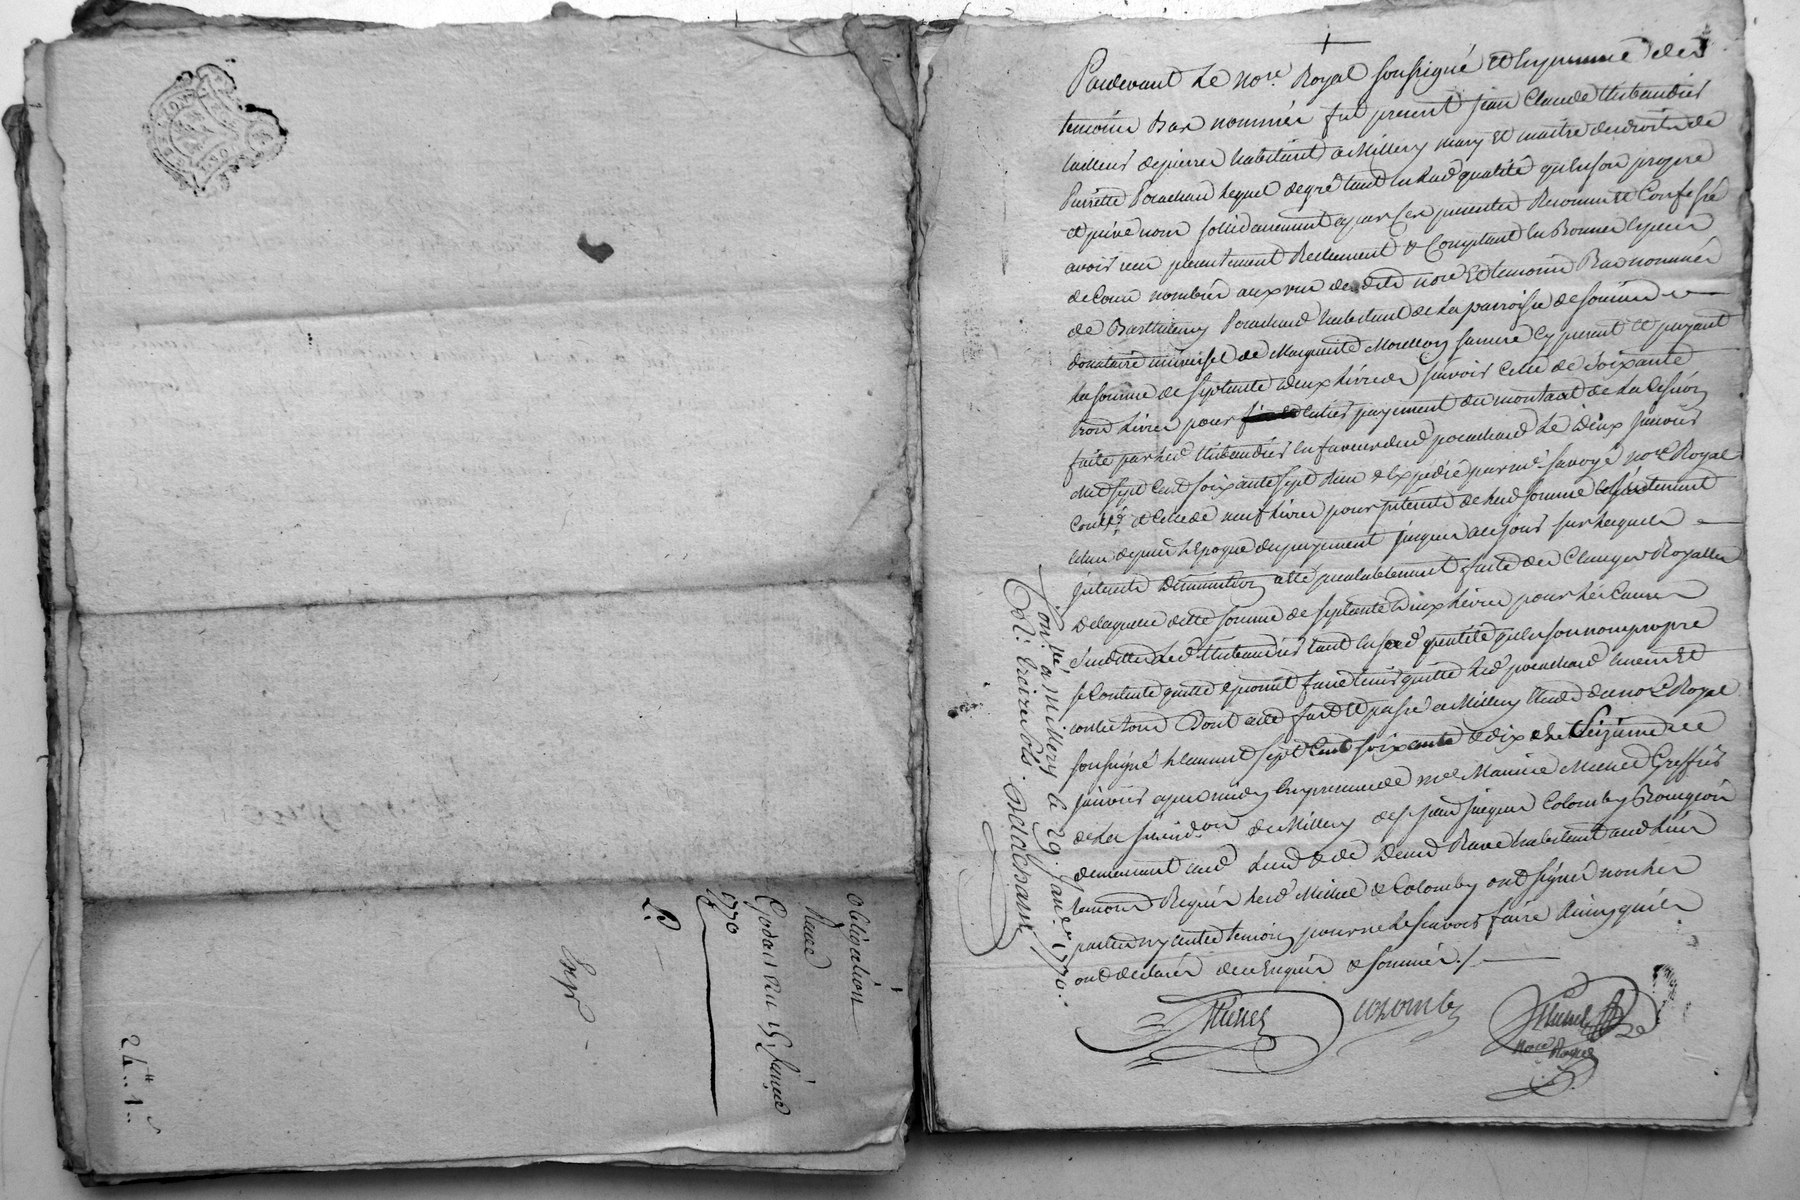 obligation
Rave
1770
Exp.
24# 1s
Pardevant le nore. Royal soussigné et en presence des
temoins Bas nommés fut present jean Claude thibaudier
tailleur de pierres habitant a Millery mary et maitre des droits de
Pierrette Pouchard lequel de gré tant en lad qualité qu'en son propre
et privé nom solidairement a par ces presentes Reconnu et Confessé
avoir reçu presentement Reellement & Comptant en Bonnes especes
de Cours nombrées aux vue desdits nore et temoins Bas nommés
de Barthelemy Pouchard habitant de la parroisse de
donataire universel de Marguerite Morellon sa mere cy present et payant
la somme de septante deux livres sçavoir celle de soixante
trois livres pour entier payement du montant de la Cession
faite par led thibaudier en faveur dud pouchard le deux janvier
mil sept cent soixante sept reçu & expedié par me. savoye nore Royal
et celle de neuf livres pour interets de lad somme
celui depuis l'epoque du payement jusques a ce jour sur lesquels
interets diminution a été prealablement faite des Charges Royalles
de laquelle ditte somme de septante deux livres pour les Causes
susdittes led thibaudier tant en sad qualité qu'en son nom propre
se Contente quitte & promet faire tenir quitte led pouchard envers et
contre tous Dont acte fait et passé a Millery etude du nore Royal
soussigné l'an mil sept Cent soixante & dix & le seizieme
janvier apres midy en presence de me. Maurice Michel Greffier
de la juridon de Millery de sr jean jacques Colomby Bourgeois
demeurant aud lieu & de Rave habitant aud lieu
temoins Requis led Michel & Colomby ont signé non les
parties ny autre temoin pour ne le sçavoir faire ainsy qu'ils
ont declaré de ce enquis & sommés ./.
Michel
colomby
nore Royal
Conlé à Millery le 29. janer. 1770.
R. treize sols.